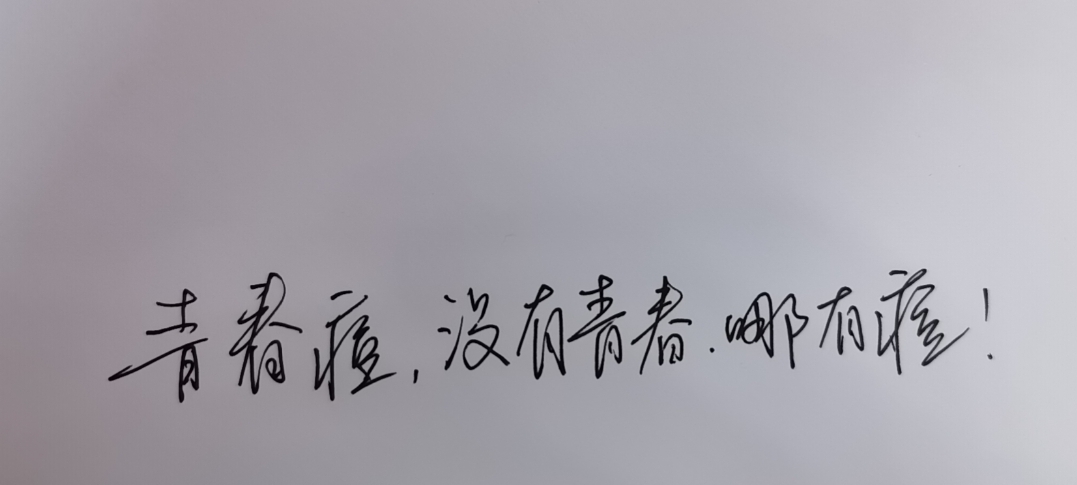 青春痘,没有青春.哪有痘!